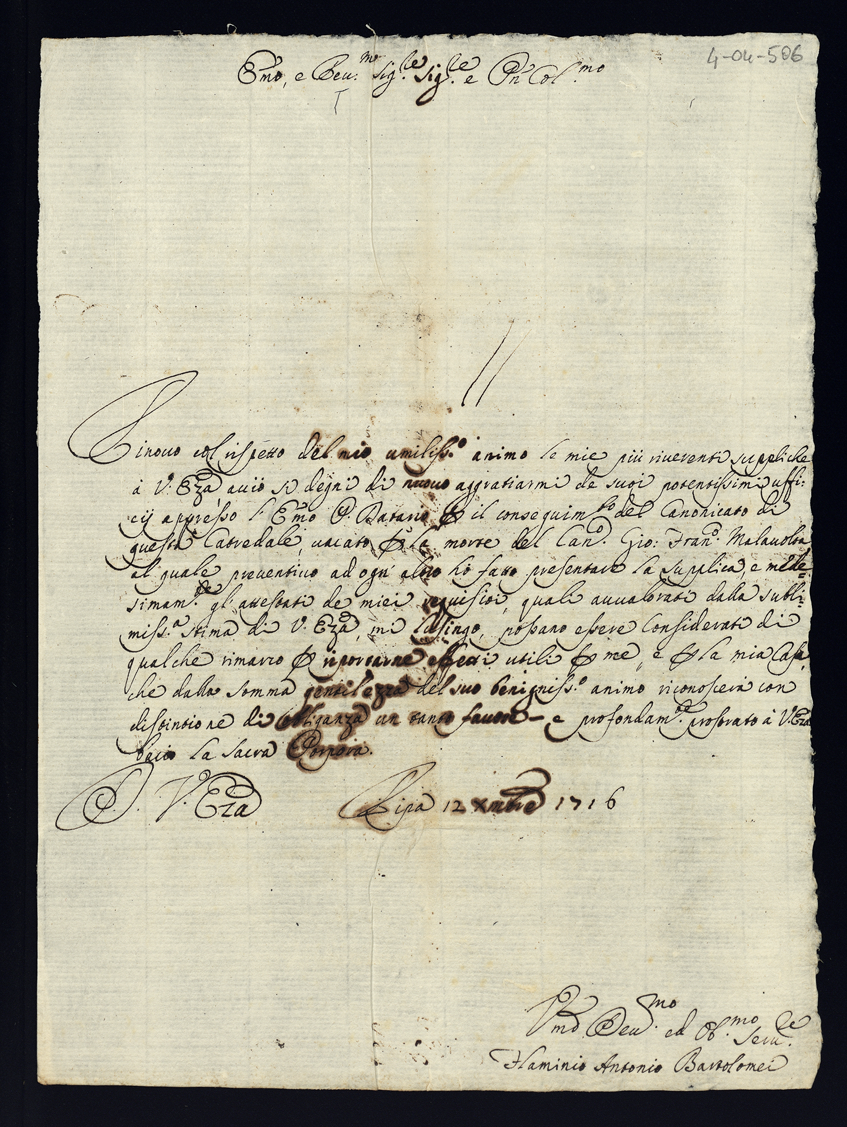 4-04-506
Emo, e Reu.mo Sig.re Sig.re e Pn Col.mo
Rinouo col rispetto del mio umiliss.o animo le mie più riuerenti suppliche
à V. Eza acciò si degni di nuouo aggratiarmi de suoi potentissimi uffi-
cij appresso l'Emo P. Datario p il conseguim.to del Canonicato di
questa Catredale, uacato p la morte del Can.o Gio: Fran.o Malauolta
al quale preuentiuo ad ogn'altro ho fatto presentare la supplica, e mede-
simam.te gli attestati de miei requisiti, quali auualorati dalla subli-
miss.a stima di V. Eza, mi lusingo, possano essere considerati di
qualche rimarco p riportarne effetti utili p me, e p la mia Casa,
che dalla somma gentilezza del suo benigniss.o animo riconoscerà con
distintione di obliganza un tanto fauore - e profondam.te prostrato à V. Eza
bacio la Sacra Porpora.
D. V. Eza Ripa 12 Xmbre 1716
Vmo Deu.mo ed Ob.mo Seru.re
Flaminio Antonio Bartolomei